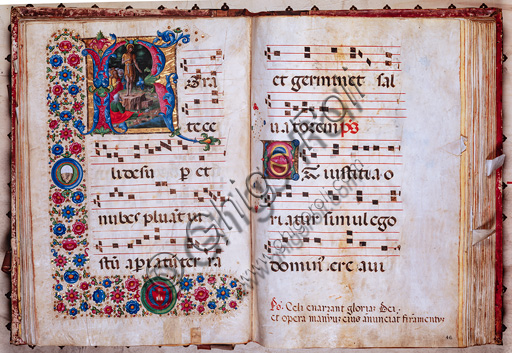 Rora
te ce
li desu p et
nubes pluat iu
stū apiatur terra
et germinet sal
uatorem ps
Et iustitia o
riatur simul ego
domin' cre aui
Ps. Celi enarrant gloriaz Dei,
et opera manuuz eius anunciat firamentuz
© Ghigo Roli